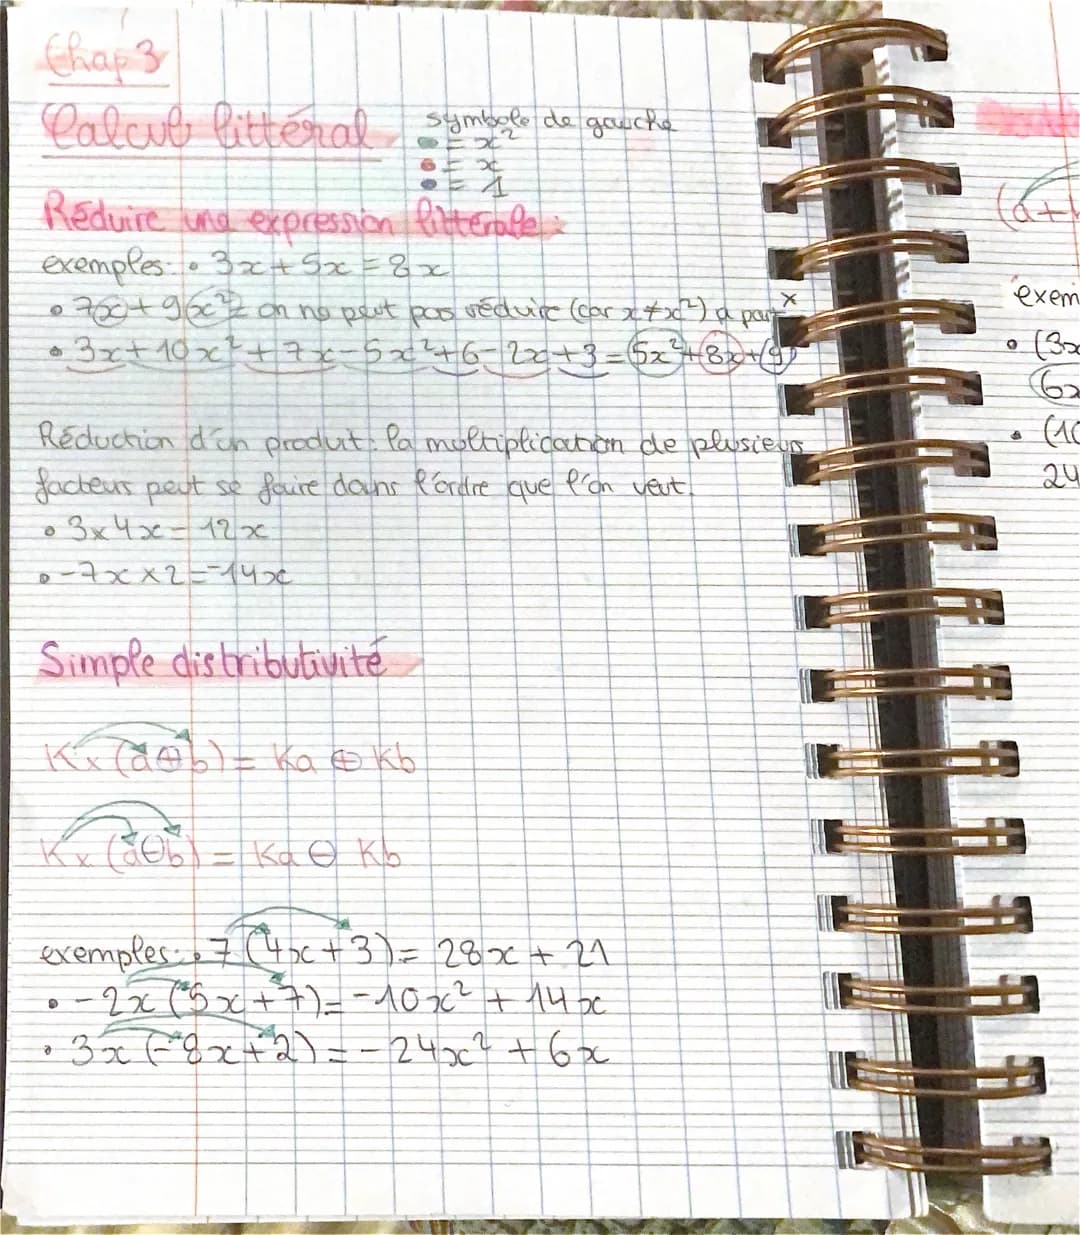 Chap 3
Calcul littéral
symbole de gauche
= x²
= x
= 1
Réduire une expression littérale :
exemples : • 3x + 5x = 8x
• 7x + 9x² = on ne peut pas réduire (car x ≠ x²) à part x
• 3x + 10x² + 7x - 5x² + 6 - 2x + 3 = 5x² + 8x + 9
Réduction d'un produit : la multiplication de plusieurs
facteurs peut se faire dans l'ordre que l'on veut.
• 3 x 4x = 12x
• -7x x 2 = -14x
Simple distributivité
K x (a + b) = Ka + Kb
K x (a - b) = Ka - Kb
exemples : • 7 (4x + 3) = 28x + 21
• -2x (5x + 7) = -10x² + 14x
• 3x (-8x + 2) = -24x² + 6x
(a+
exem
• (3x
6x
• (10
24